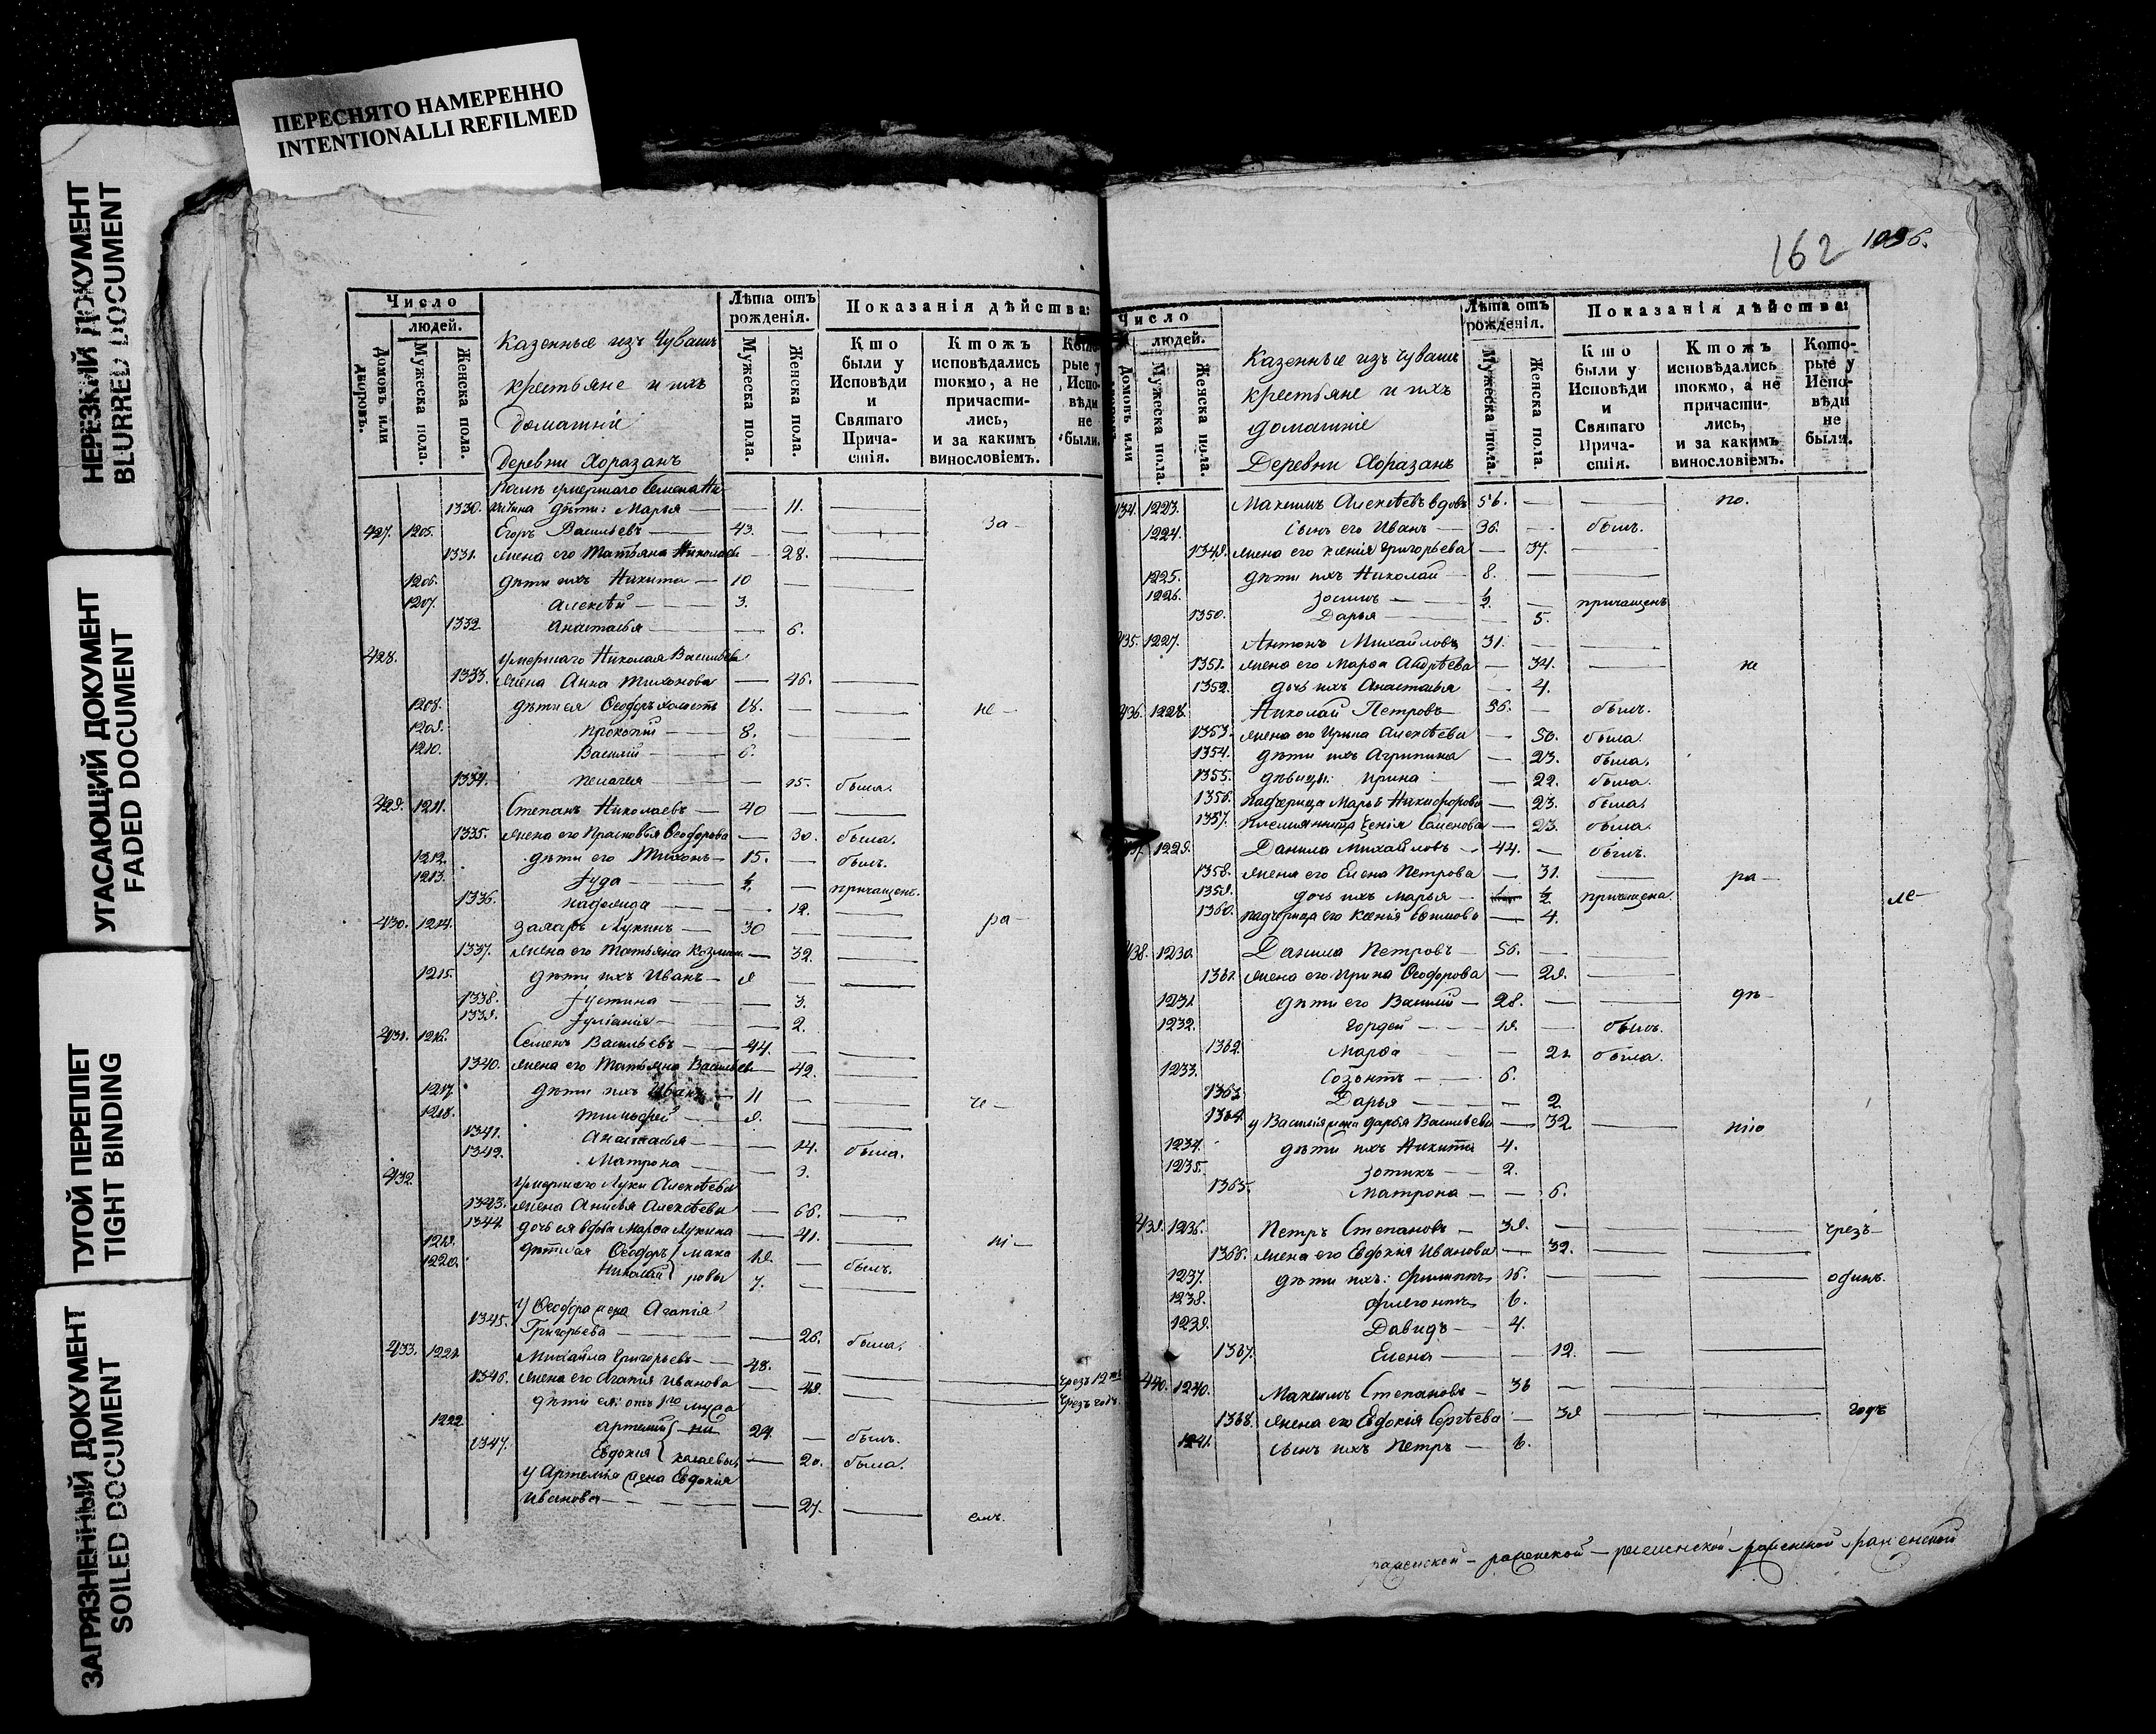 ПЕРЕСНЯТО НАМЕРЕННО
INTENTIONALLI REFILMED
НЕРЕЗКИЙ ДОКУМЕНТ
BLURRED DOCUMENT
УГАСАЮЩИЙ ДОКУМЕНТ
FADED DOCUMENT
ТУГОЙ ПЕРЕПЛЕТ
TIGHT BINDING
ЗАГРЯЗНЕННЫЙ ДОКУМЕНТ
SOILED DOCUMENT
Число
людей.
Домовъ или дворовъ.
Мужеска пола.
Женска пола.
Казенные изъ Чувашъ
крестьяне и ихъ
домашніе
Деревни Хоразанъ
Лѣта отъ рожденія.
Мужеска пола.
Женска пола.
Показанія дѣйства:
Кто были у Исповѣди и Святаго Причастія.
Ктожъ исповѣдались токмо, а не причастились, и за какимъ винословіемъ.
Которые у Исповѣди не были.
умершаго Семена
1330. дѣти: Марья — — 11. —
за-
427. 1205. Егоръ Васильевъ — 43. — —
1331. жена его Татьяна Николаева — 28. —
1206. дѣти ихъ Никита — 10 — —
1207. Алексѣй — 3.
1332 Анастасья — — 6.
428. умершаго Николая Васильева
1333. жена Анна Тихонова — 46. —
1208. дѣти ея Ѳеодоръ холостъ 18. — —
не-
1209. Прокопій — 8. — —
1210. Василій — 6.
1334. Пелагея — — 15. была.
429. 1211. Степанъ Николаевъ — 40 — —
1335. жена его Прасковья Ѳеодорова — 30. была.
1212. дѣти его Тихонъ — 15. — былъ.
1213. Іуда — ½. — причащенъ.
1336. — 12. —
430. 1214. Захаръ Лукинъ — 30 — —
ра-
1337. жена его Татьяна Козмина — 32. —
1215. дѣти ихъ Иванъ — 9 — —
1338. Іустина — — 3.
1339. Іуліанія — — 2.
431. 1216. Семенъ Васильевъ — 44. — —
1340. жена его Татьяна Васильева — 42. —
1217. дѣти ихъ Иванъ — 11 — —
че-
1218. Тимоѳей — 9. —
1341. Анастасья — — 14. была.
1342. Матрона — — 3.
432 умершаго Луки Алексѣева
1343. жена Анисья Алексѣева — 66. —
1344. дочь ея вдова Марѳа Лукина — 41. —
ні-
1219. дѣти ея Ѳеодоръ 19. — былъ.
1220. Николай } Мака ровы 7. —
1345. у Ѳеодора жена Агапія
Григорьева — — 26. была.
433. 1221. Михайла Григорьевъ — 48. —
1346. жена его Агапія Иванова — 49. — чрезъ годъ.
дѣти ея: отъ 1го мужа
1222 Артемій 24. — былъ.
1347. Евдокія — 20. была.
у Артемія жена Евдокія
Иванова — — 27. —
емъ.
162
Число
людей.
Домовъ или
Мужеска пола.
Женска пола.
Казенные изъ Чувашъ
крестьяне и ихъ
домашніе
Деревни Хоразанъ
Лѣта отъ рожденія.
Мужеска пола.
Женска пола.
Показанія дѣйства:
Кто были у Исповѣди и Святаго Причастія.
Ктожъ исповѣдались токмо, а не причастились, и за какимъ винословіемъ.
Которые у Исповѣди не были.
434. 1223. Максимъ Алексѣевъ вдовъ 56. — — по.
1224. Сынъ его Иванъ — 36. — былъ.
1349. жена его Ксенія Григорьева — 37. —
1225. дѣти ихъ Николай — 8. — —
1226. Зосимъ — ½. — причащенъ
1350. Дарья — 5.
435. 1227. Антонъ Михайловъ 31. — —
1351. жена его Марѳа Андрѣева — 34. — не
1352. дочь ихъ Анастасья — 4.
436. 1228. Николай Петровъ — 36. — былъ.
1353. жена его Ирина Алексѣева — 50. была.
1354. дѣти ихъ Агрипина — 23. была.
1355. дѣвицы: Ирина — 22. была.
1356. падчерица Марья Никифорова — 23. была.
1357. Племянница Ксенія Семенова — 23. была.
1229. Данила Михайловъ — 44. — былъ.
1358. жена его Елена Петрова — 31. — ра-
1359. дочь ихъ Марья — ½. причащена.
ле-
1360. падчерица его Ксенія Ефимова — 4.
438. 1230. Данила Петровъ — 56. — —
1361. жена его Ирина Ѳеодорова — 29. —
дѣ-
1231. дѣти его Василій — 28. — —
1232. Гордей — 19. — былъ.
1362. Марѳа — — 21 была.
1233. Созонтъ — 6.
1363 Дарья — — 2
1364 у Василія жена Дарья Васильева — 32 — нію
1234. дѣти ихъ Никита 4.
1235. Зотикъ — 2.
1365. Матрона — — 6.
439. 1236. Петръ Степановъ — 39. — — — чрезъ-
1366. жена его Евдокія Иванова — 32. — —
1237. дѣти ихъ: Филиппъ 16. — — — одинъ.
1238. Флегонтъ 6.
1239. Давидъ — 4.
1367. Елена — — 12. — —
440. 1240. Максимъ Степановъ — 36 — — —
1368. жена его Евдокія Сергѣева — 39 — — годъ
1241. сынъ ихъ Петръ — 6.